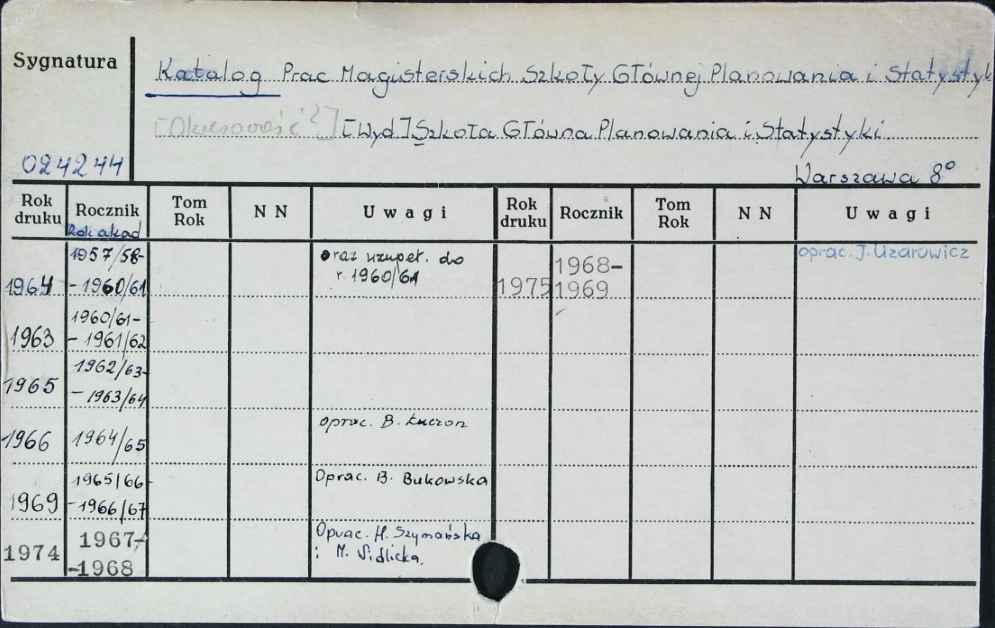 Sygnatura
Katalog Prac Magisterskich Szkoły Głównej Planowania i Statystyk
[Wyd] Szkoła Główna Planowania i Statystyki
024244
Warszawa 8°
Rok druku Rocznik Tom Rok N N Uwagi Rok druku Rocznik Tom Rok N N Uwagi
Rok akad
1964 1957/58- - 1960/61 oraz uzupeł. do r. 1960/61 1975 1968- 1969 oprac. J. Uzarowicz
1963 1960/61- - 1961/62
1965 1962/63- - 1963/64
1966 1964/65 oprac. B.
1969 1965/66- - 1966/67 Oprac. B. Bukowska
1974 1967- -1968 Oprac. H. Szymańska i M.